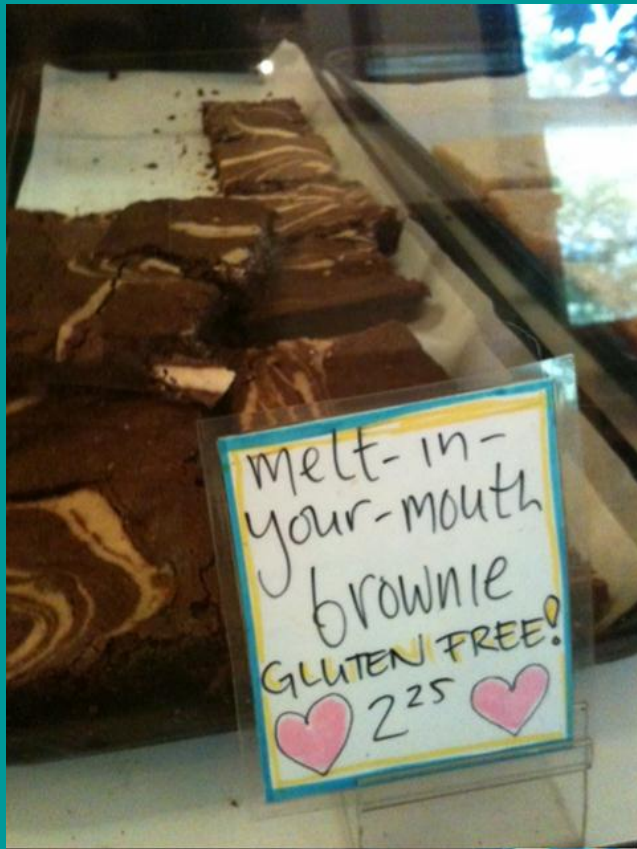 melt-in-
your-mouth
brownie
GLUTEN FREE!
2 25